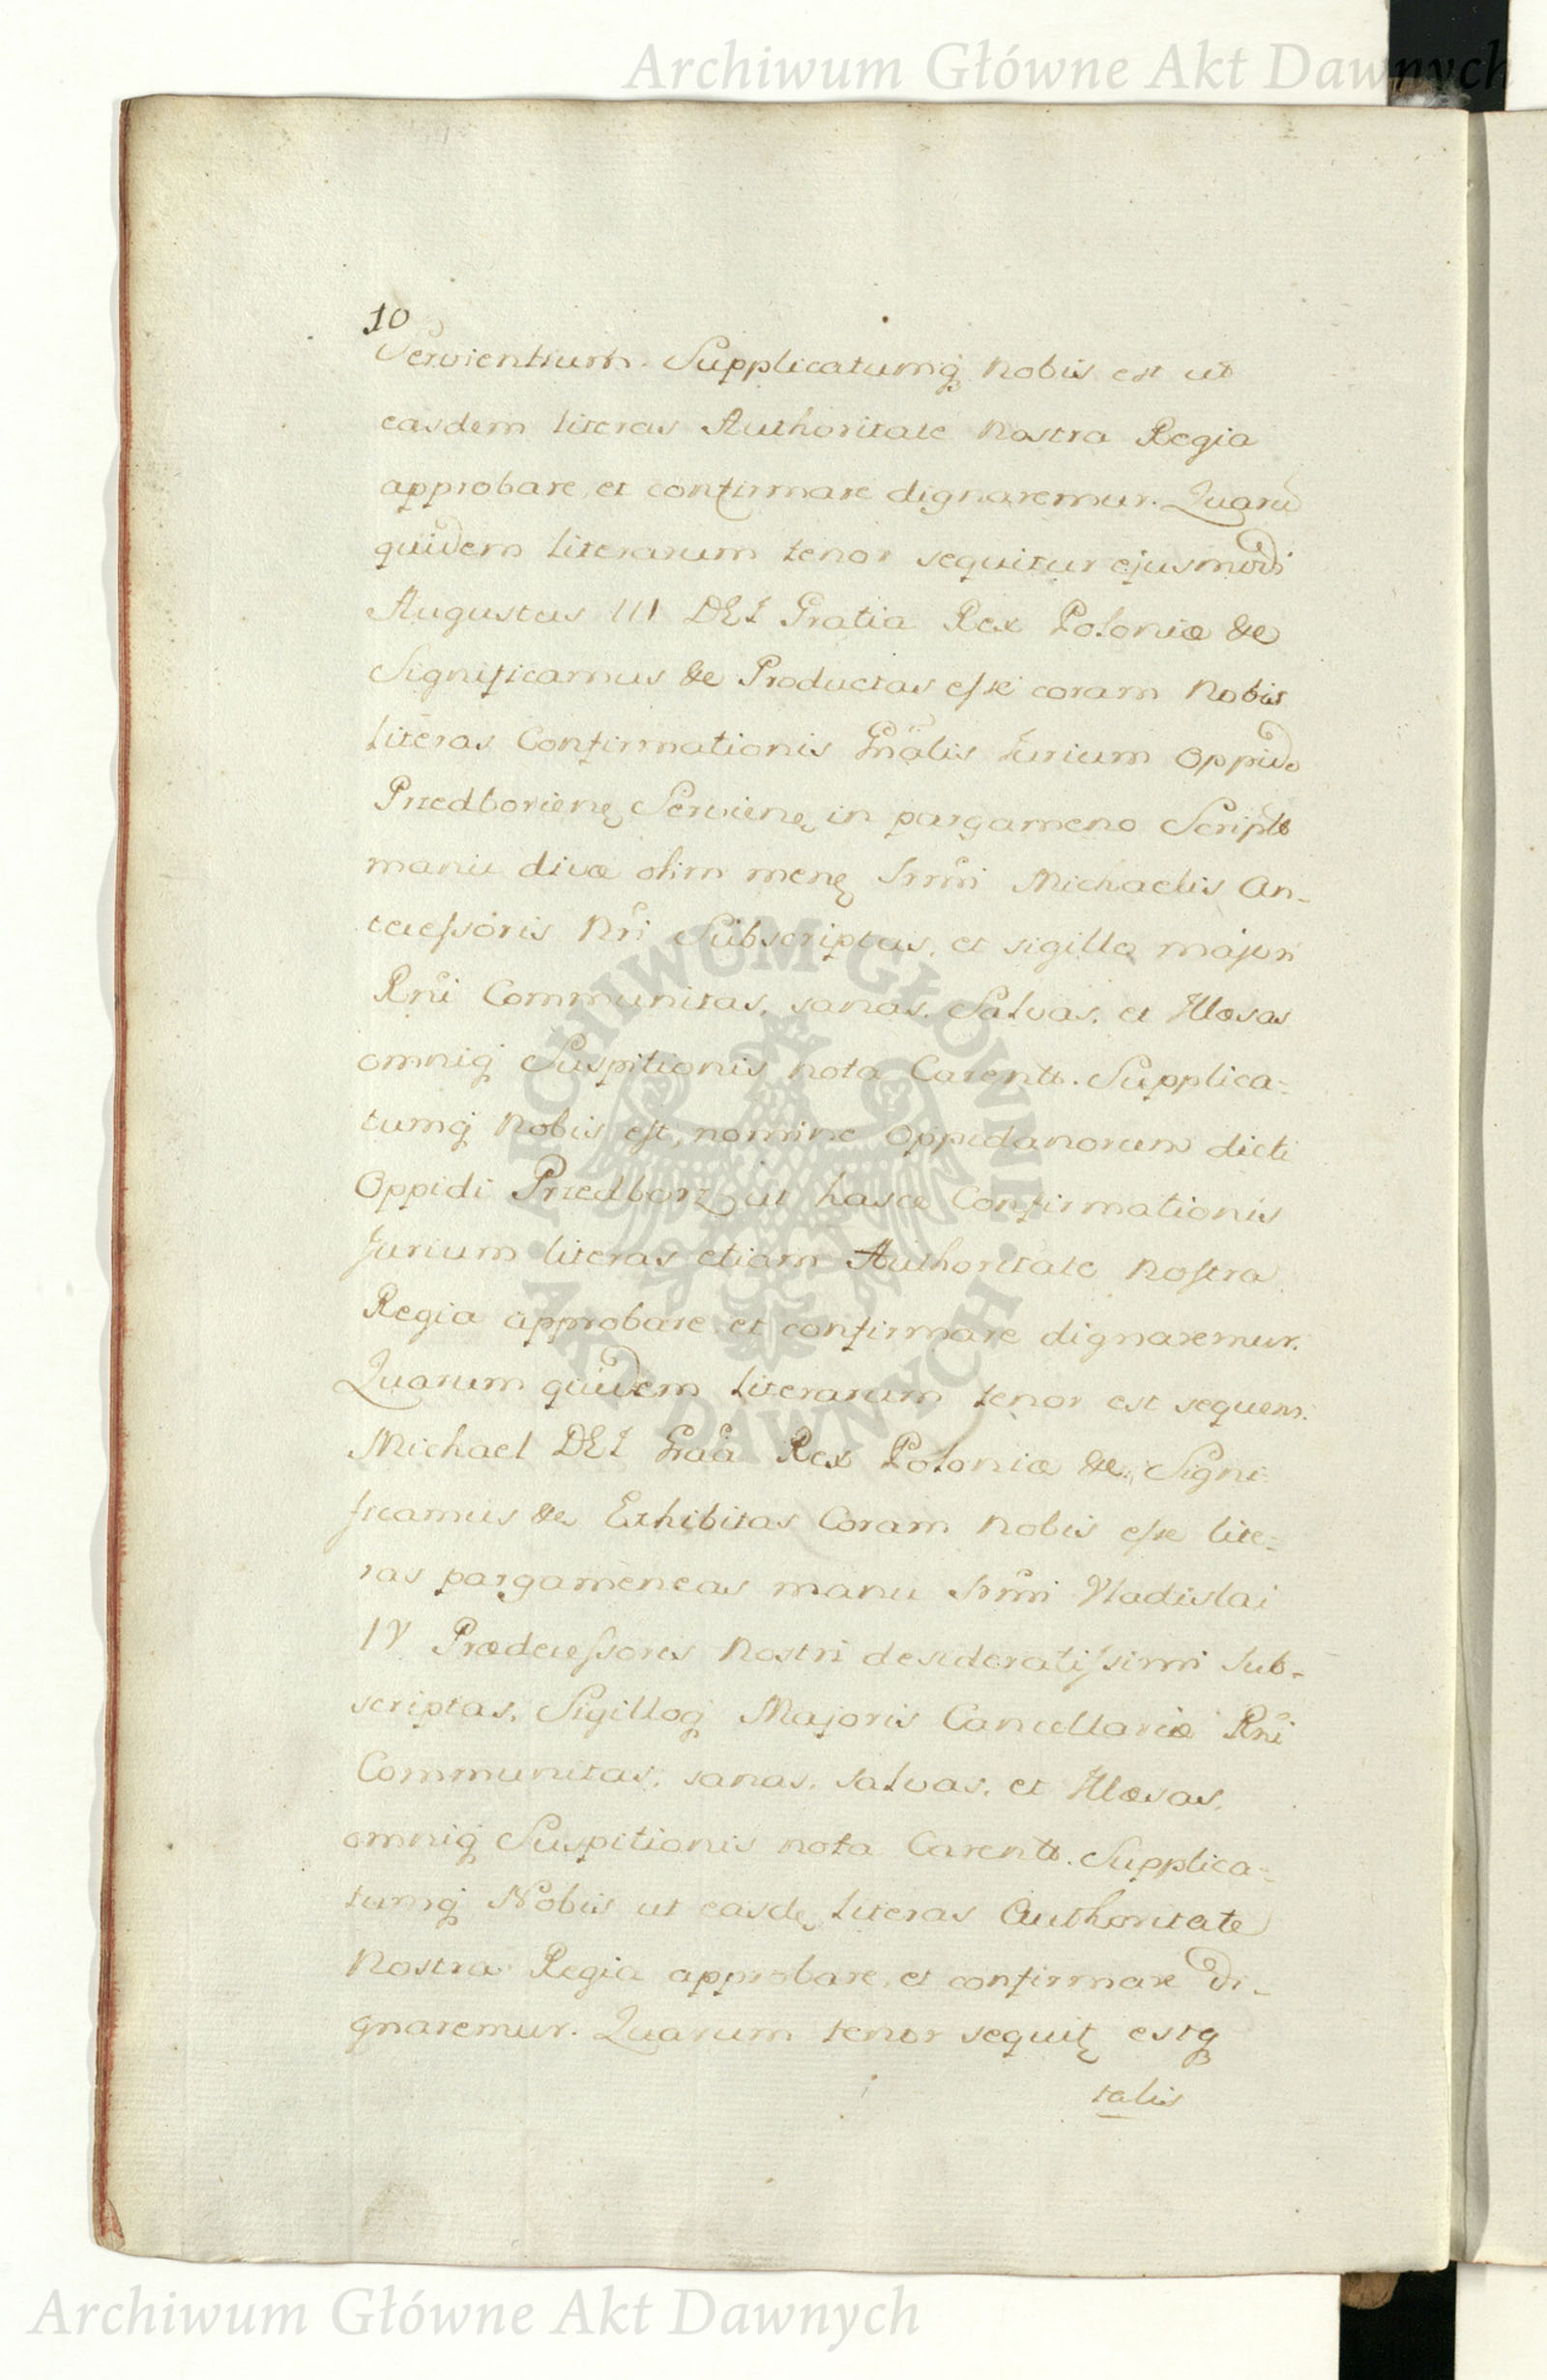 Archiwum Główne Akt Dawnych
10
Servientium. Supplicatumq nobis est ut
easdem literas Authoritate Nostra Regia
approbare, et confirmare dignaremur. Quarū
quidem literarum tenor sequitur ejusmodi
Augustus III DEI Gratia Rex Poloniæ &c
Significamus &c Productas esse coram Nobis
literas Confirmationis Gn̄alis Jurium Oppido
Przedborien Servien in pargameno Script
manu divæ olim men Srm̄i Michaelis An-
tecessoris Nr̄i Subscriptas, et sigillo majori
Rn̄i Communitas, sanas, Salvas, et Illæsas
omniq Suspitionis nota Carent. Supplica-
tumq Nobis est, nomine Oppidanorum dicti
Oppidi Przedborz ut hasce Confirmationis
Jurium literas etiam Authoritate Nostra
Regia approbare et confirmare dignaremur.
Quarum quidem literarum tenor est sequens.
Michael DEI Gr̄a Rex Poloniæ &c. Signi-
ficamus &c Exhibitas Coram Nobis esse lite-
ras pargameneas manu Srm̄i Vladislai
IV Prædecessoris Nostri desideratissimi Sub-
scriptas, Sigilloq Majoris Cancellariæ Rn̄i
Communitas, sanas, salvas, et Illæsas,
omniq Suspitionis nota Carent. Supplica-
tumq Nobis ut easdę literas Authoritate
Nostra Regia approbare, et confirmare di-
gnaremur. Quarum tenor sequit estq
talis
ARCHIWUM GŁÓWNE · AKT DAWNYCH ·
Archiwum Główne Akt Dawnych